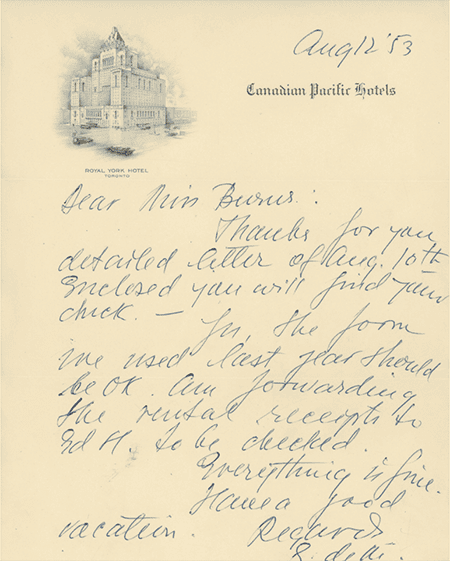 Aug 12 '53
Canadian Pacific Hotels
ROYAL YORK HOTEL
TORONTO
Dear Miss Burns:
Thanks for you
detailed letter of Aug. 10th
Enclosed you will find your
check. —
the form
we used last year should
be OK. Am forwarding
the rental receipts to
Ed H. to be checked.
Everything is fine.
Have a good
vacation. Regards